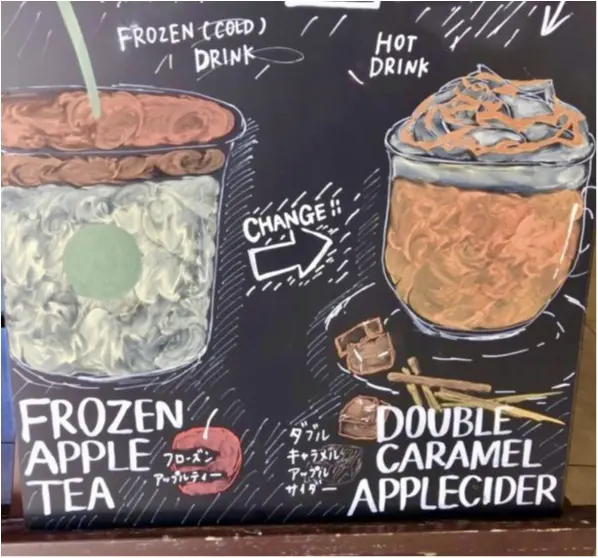 FROZEN (COLD)
DRINK
HOT
DRINK
CHANGE!!
FROZEN
APPLE
TEA
フローズン
アップルティー
ダブル
キャラメル
アップル
サイダー
DOUBLE
CARAMEL
APPLECIDER